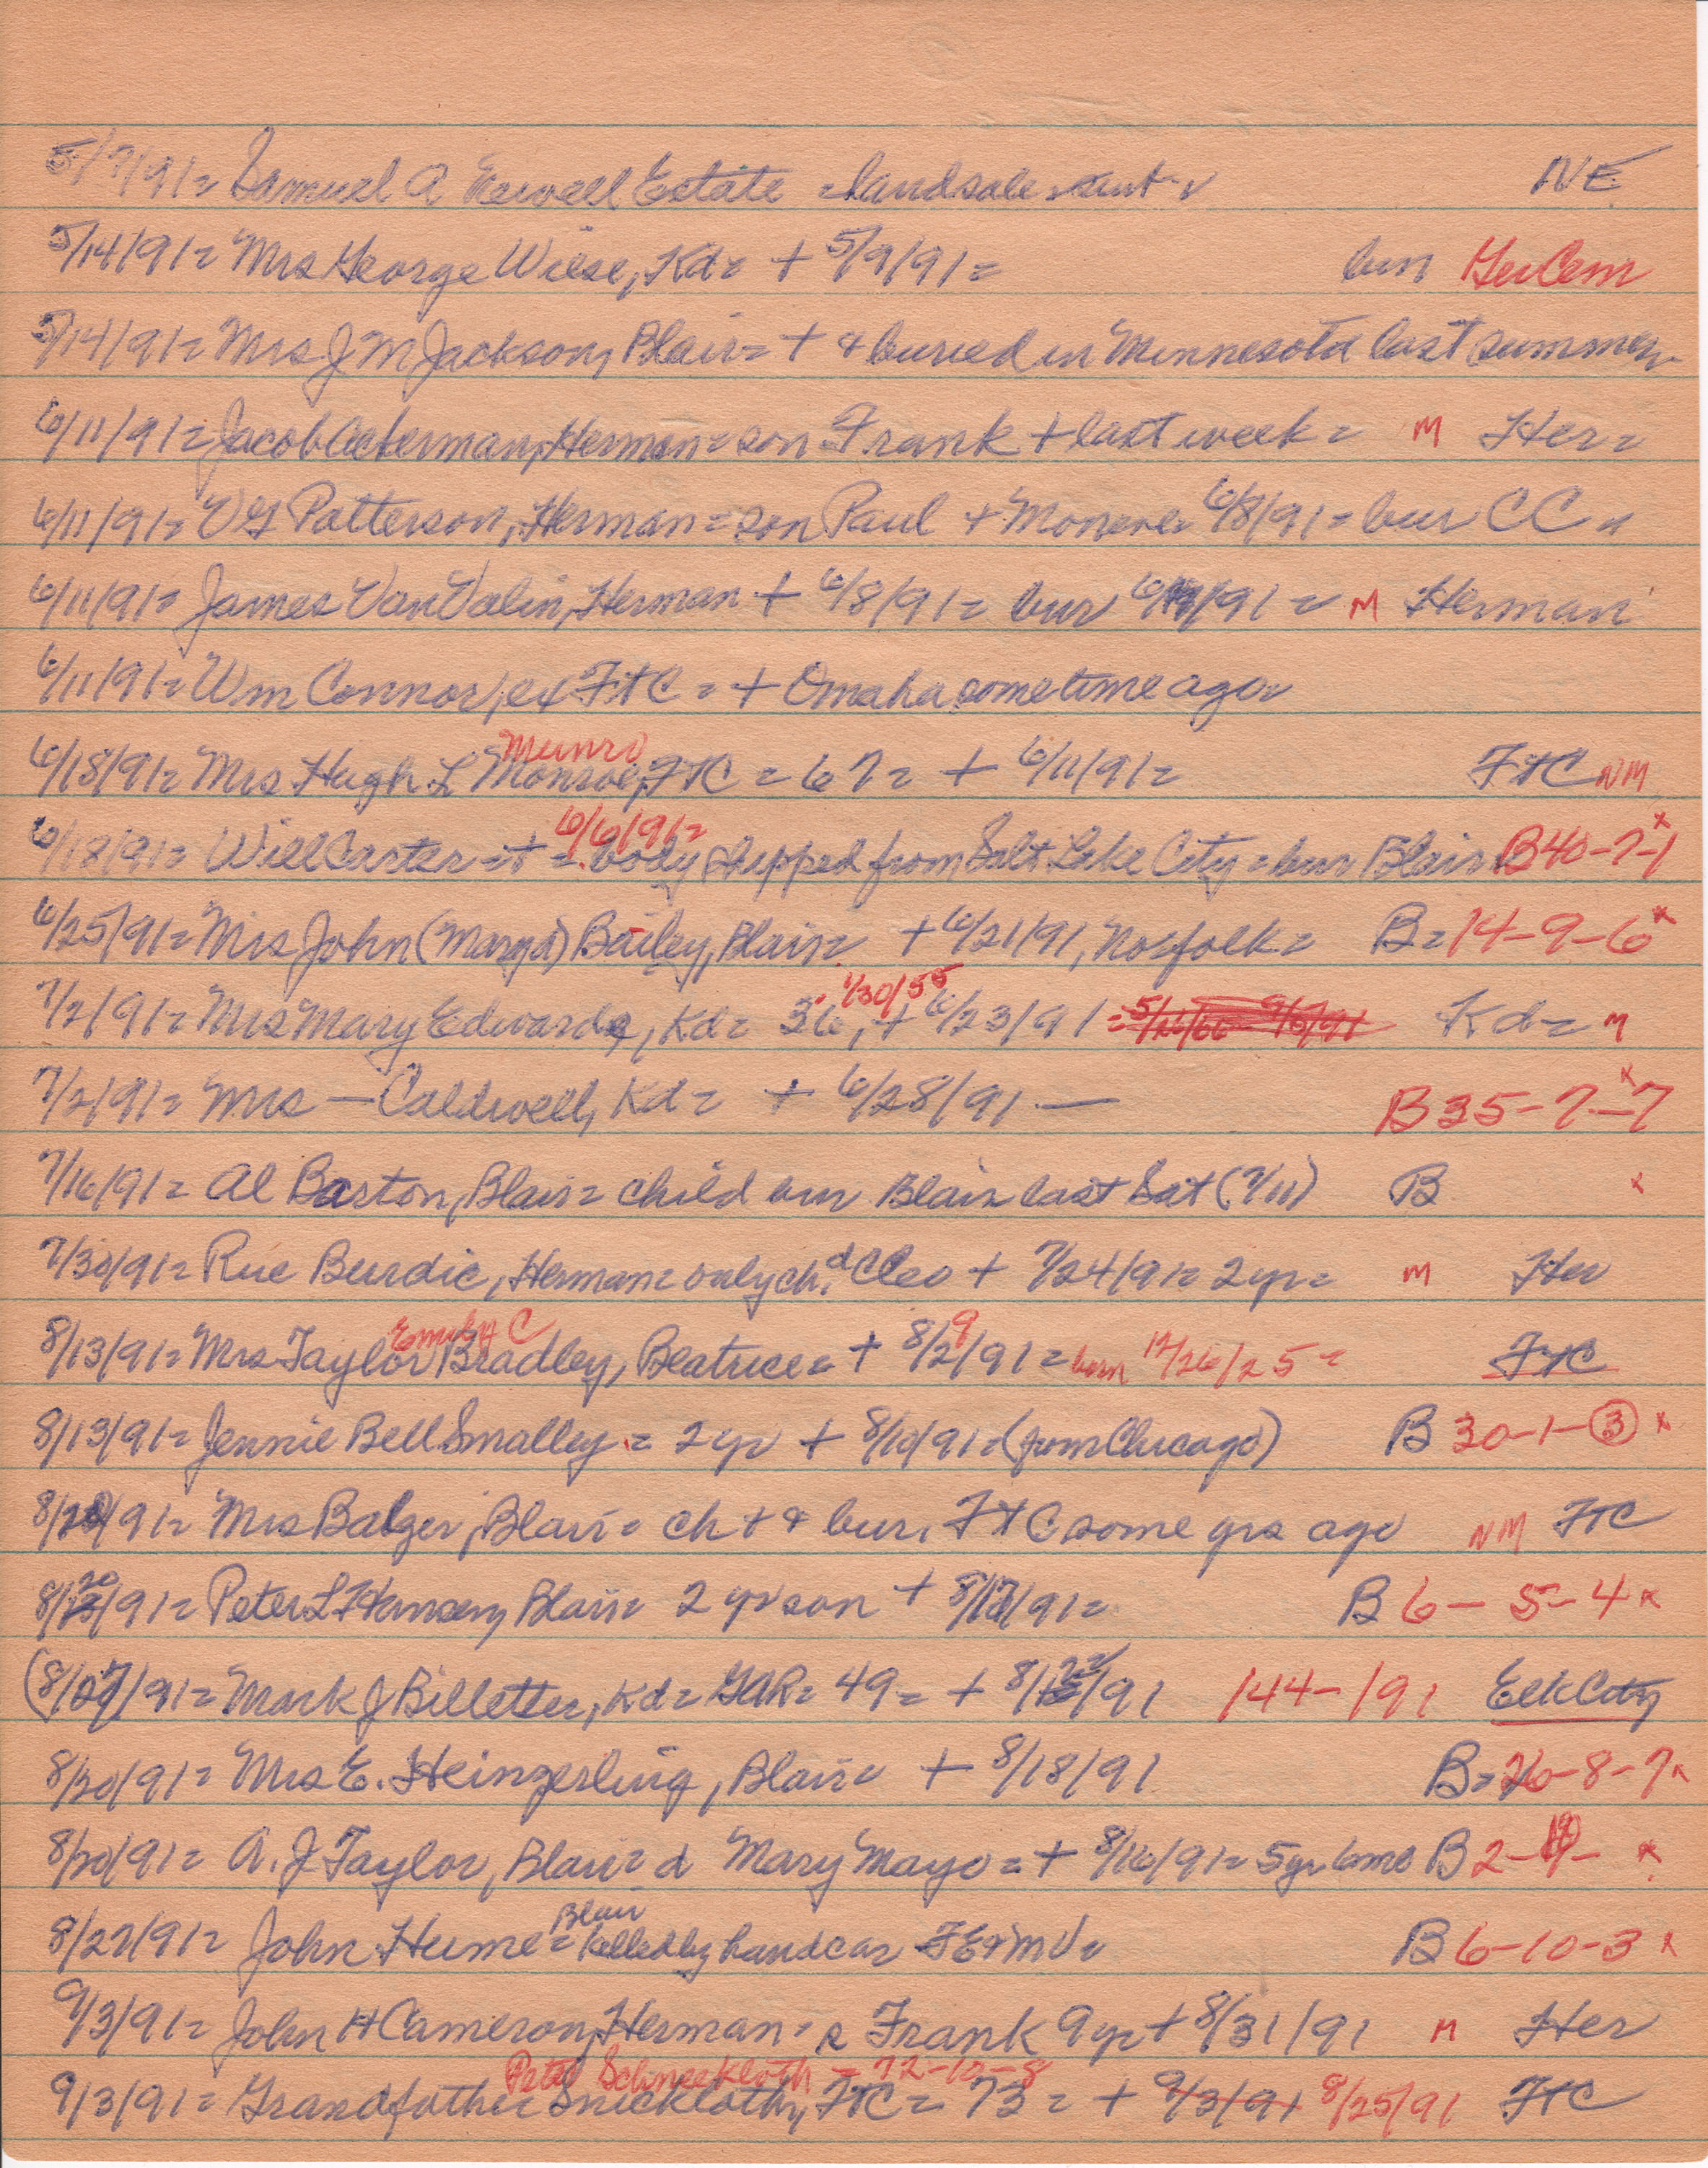 5/7/91= Samuel A Ewell Estate =landsale NE
5/14/91= Mrs George Wiese, Kd= + 5/9/91= bur Ger Cem
5/14/91= Mrs J M Jackson, Blair= + & buried in Minnesota last summer
6/11/91= Jacob Ackerman, Herman= son Frank + last week= M Her=
6/11/91= V G Patterson, Herman= son Paul + 6/8/91= bur CC=
6/11/91= James VanValin, Herman + 6/8/91= bur 6/ /91= M Herman
6/11/91= Wm Connor, ex FtC = + Omaha sometime ago
Munro
6/18/91= Mrs Hugh L Monroe, FtC = 67= + 6/11/91= FtC NM
6/6/91=
6/18/91= Will Carter =+ = body shipped from Salt Lake City = bur Blair B40-7-1 x
6/25/91= Mrs John (Mary ) Bailey, Blair= +6/21/91, Norfolk= B= 14-9-6 x
1/30/55
7/2/91= Mrs Mary Edwards, Kd= 36, + 6/23/91 Kd= M
7/2/91= Mrs — Caldwell, Kd= + 6/28/91 — B 35-7-7 x
7/16/91= Al Barton, Blair= child bur Blair last Sat (7/11) B x
7/30/91= Rue Burdic, Herman= only ch. d Cleo + 7/24/91= 2yr= M Her
Emily C 9
8/13/91= Mrs Taylor Bradley, Beatrice= + 8/2/91= born 12/26/25= FtC
8/13/91= Jennie Bell Smalley = 2 yr + 8/10/91= (from Chicago) B 30-1-3 x
8/20/91= Mrs Balger, Blair= ch + & bur. FtC some yrs ago NM FtC
8/20/91= Peter L Hansen, Blair= 2 yr son + 8/17/91= B 6-5-4 x
(8/27/91= Mark J Billetter, Kd= GAR= 49= + 8/22/91 144-191 Elk City
8/20/91= Mrs E. Heinzerling, Blair= + 8/18/91 B= 26-8-7 x
8/20/91= A. J Taylor, Blair= d Mary Mayo= + 8/16/91= 5yr 6mo B 2- - x
Blair
8/27/91= John Hume= killed by handcar FE&MV= B 6-10-3 x
9/3/91= John H Cameron, Herman= s Frank 9yr + 8/31/91 M Her
Peter Schneekloth = 72-10-8
9/3/91= Grandfather Sneckloth, FtC= 73= + 9/3/91 8/25/91 FtC